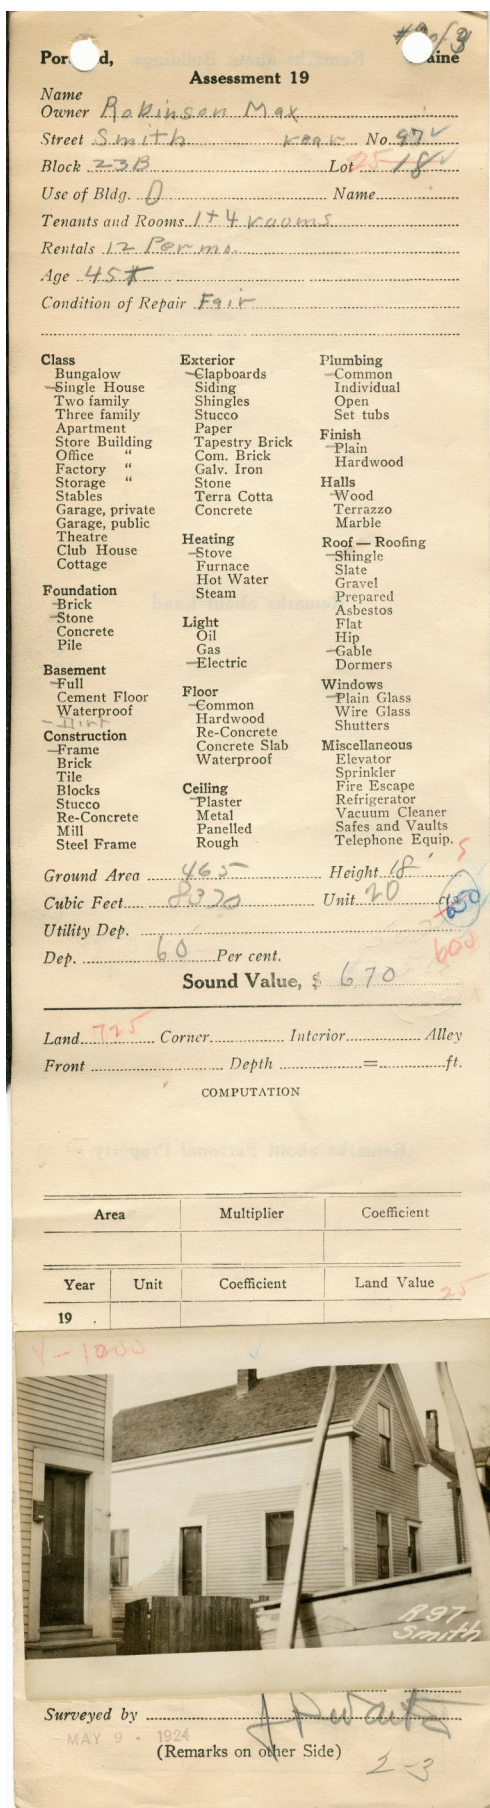 #2 of 3
Por d, aine
Assessment 19
Name
Owner Robinson Max
Street Smith rear No. 97
Block 23B Lot 25 18
Use of Bldg. D Name
Tenants and Rooms 1+4 rooms
Rentals 12 Per mo.
Age 45
Condition of Repair Fair
Class
Bungalow
Single House
Two family
Three family
Apartment
Store Building
Office "
Factory "
Storage "
Stables
Garage, private
Garage, public
Theatre
Club House
Cottage
Foundation
Brick
Stone
Concrete
Pile
Basement
Full
Cement Floor
Waterproof
Dirt
Construction
Frame
Brick
Tile
Blocks
Stucco
Re-Concrete
Mill
Steel Frame
Exterior
Clapboards
Siding
Shingles
Stucco
Paper
Tapestry Brick
Com. Brick
Galv. Iron
Stone
Terra Cotta
Concrete
Heating
Stove
Furnace
Hot Water
Steam
Light
Oil
Gas
Electric
Floor
Common
Hardwood
Re-Concrete
Concrete Slab
Waterproof
Ceiling
Plaster
Metal
Panelled
Rough
Plumbing
Common
Individual
Open
Set tubs
Finish
Plain
Hardwood
Halls
Wood
Terrazzo
Marble
Roof — Roofing
Shingle
Slate
Gravel
Prepared
Asbestos
Flat
Hip
Gable
Dormers
Windows
Plain Glass
Wire Glass
Shutters
Miscellaneous
Elevator
Sprinkler
Fire Escape
Refrigerator
Vacuum Cleaner
Safes and Vaults
Telephone Equip.
Ground Area 465 Height 18'
Cubic Feet 8370 Unit 20 cts. 650
Utility Dep.
600
Dep. 60 Per cent.
Sound Value, $ 670
Land 725 Corner Interior Alley
Front Depth = ft.
COMPUTATION
Area Multiplier Coefficient
Year Unit Coefficient Land Value 25
19 .
V-1000
R 97
Smith
Surveyed by
MAY 9 - 1924
(Remarks on other Side)
2-3